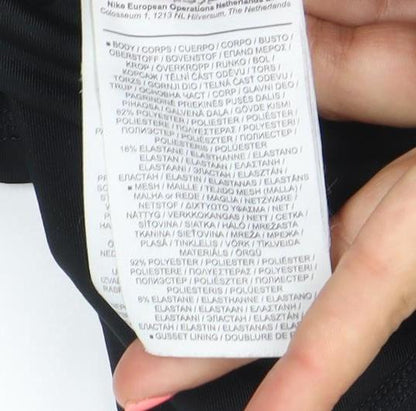 Nike European Operations Netherlands
Colosseum 1, 1213 NL Hilversum, The Netherlands
● BODY / CORPS / CUERPO / CORPO / BUSTO /
OBERSTOFF / BOVENSTOF / ΕΠΑΝΩ ΜΕΡΟΣ /
KROP / ÖVERKROPP / RUNKO / BOL /
КОРСАЖ / TĚLNÍ ČÁST ODĚVU / TÖRS /
TORZS / GORNJI DIO / TELNÁ ČASŤ ODEVU /
TRUP / ОСНОВНА ЧАСТ / CORP / GLAVNI DEL /
PAGRINDINĖ PRIEKINĖS PUSĖS DALIS /
PIHAOSA / GALVENĀ DAĻA / GÖVDE KISMI
82% POLYESTER / POLIÉSTER / POLIESTER /
POLIESTERE / ΠΟΛΥΕΣΤΕΡΑΣ / POLYESTERI /
ПОЛИЭСТЕР / POLIÉSZTER / ПОЛИЕСТЕР /
POLIESTERIS / POLÜESTER
18% ELASTANE / ELASTHANNE / ELASTANO /
ELASTAN / ELASTAAN / ΕΛΑΣΤΑΝΗ /
ELASTAANI / ЭЛАСТАН / ELASZTÁN /
ЕЛАСТАН / ELASTIN / ELASTANAS / ELASTĀNS
● MESH / MAILLE / TEJIDO MESH (MALLA) /
MALHA or REDE / MAGLIA / NETZWARE /
NETSTOF / ΔΙΚΤΥΩΤΟ ΥΦΑΣΜΑ / NET /
NÄTTYG / VERKKOKANGAS / NETT / СЕТКА /
SÍŤOVINA / SIATKA / HÁLÓ / MREŽASTA
TKANINA / SIEŤOVINA / МРЕЖА / MREŽA /
PLASĂ / TINKLELIS / VÕRK / TĪKLVEIDA
MATERIĀLS / ÖRGÜ
92% POLYESTER / POLIÉSTER / POLIESTER /
POLIESTERE / ΠΟΛΥΕΣΤΕΡΑΣ / POLYESTERI /
ПОЛИЭСТЕР / POLIÉSZTER / ПОЛИЕСТЕР /
POLIESTERIS / POLÜESTER
8% ELASTANE / ELASTHANNE / ELASTANO /
ELASTAN / ELASTAAN / ΕΛΑΣΤΑΝΗ /
ELASTAANI / ЭЛАСТАН / ELASZTÁN /
ЕЛАСТАН / ELASTIN / ELASTANAS / ELASTĀNS
● GUSSET LINING / DOUBLURE DE